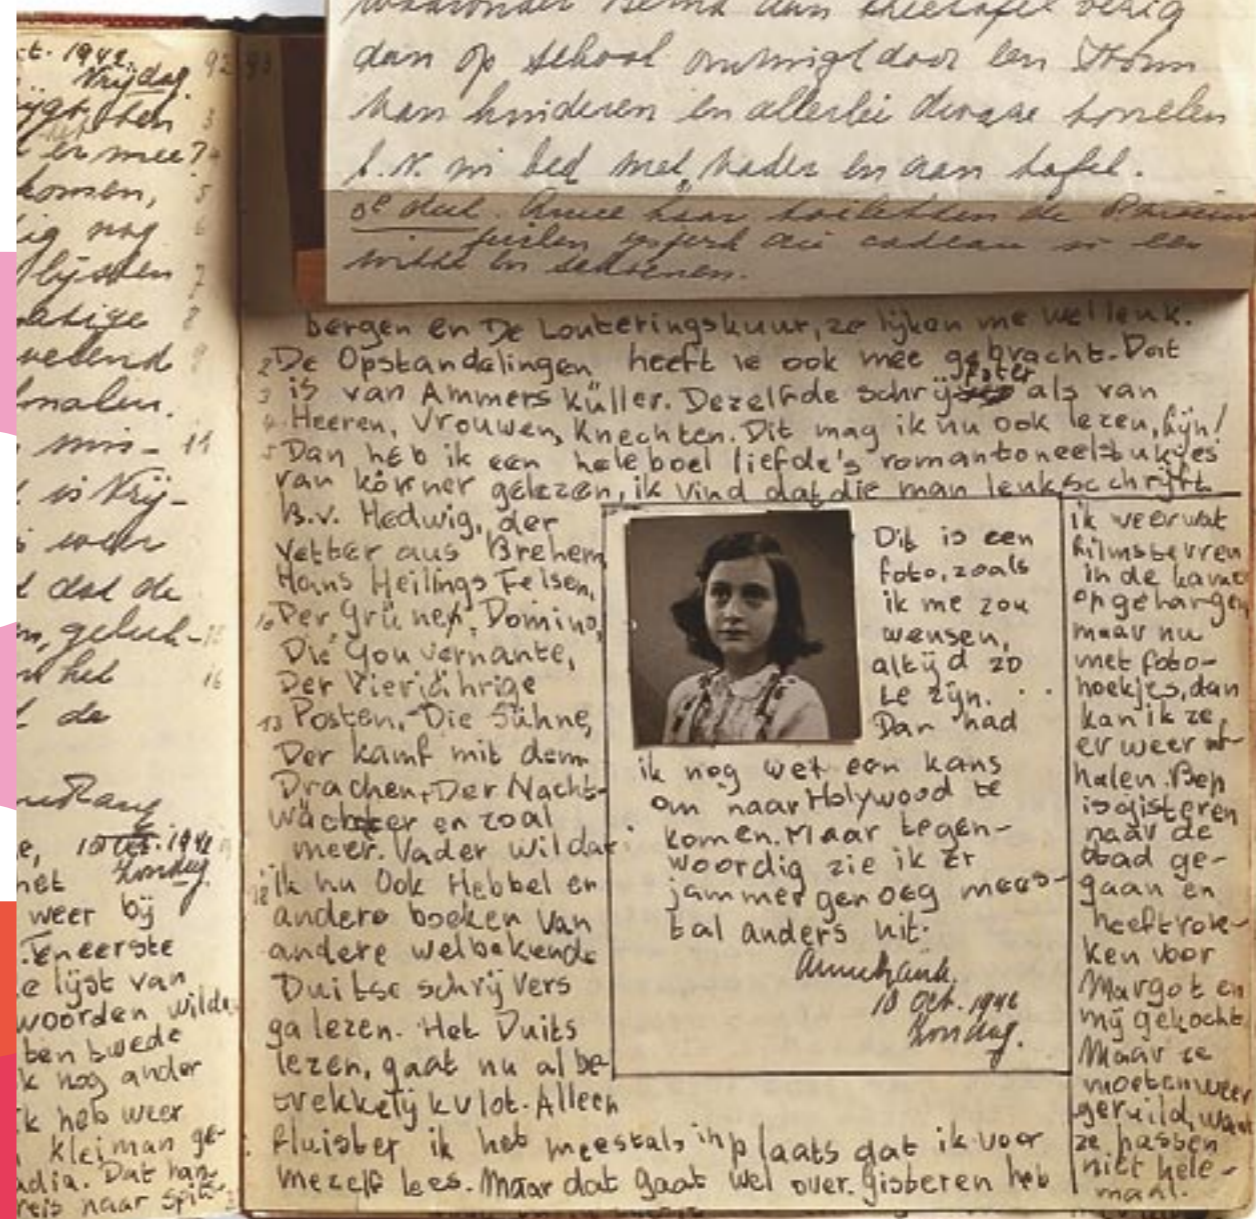 dan op school omringd door een stroom
van kinderen en allerlei diverse tonelen
b.v. in bed met vader en aan tafel.
3e deel. Anne haar toiletten de
cadeau in een
witte
ct. 1942.
Vrijdag
92 93
ijgt ben
d er mee?
komen,
ig nog
lijsten
atige
velend
malen.
mis-
d is Vrij-
weer
d dat de
n, geluk-
het
d de
10 Oct. 1942
Zondag
weer bij
Teneerste
e lijst van
woorden wilde
ten twede
k nog ander
k heb weer
Kleiman ge-
adia. Dat han
reis naar Spit-
bergen en De Louteringskuur, ze lijken me wel leuk.
De Opstandelingen heeft ie ook mee gebracht. Dat
is van Ammers Küller. Dezelfde schrijfster als van
Heeren, Vrouwen, Knechten. Dit mag ik nu ook lezen, fijn!
Dan heb ik een heleboel liefde's romantoneelstukjes
van Körner gelezen, ik vind dat die man leuk schrijft
B.v. Hedwig, der
Vetter aus Brehem,
Hans Heilings Felsen,
Der Grüne, Domino,
Die Gouvernante,
Der Vierjährige
Posten, Die Sühne,
Der Kamf mit dem
Drachen, Der Nacht-
wächter en zoal
meer. Vader wil dat
ik nu ook Hebbel en
andere boeken van
andere welbekende
Duitse schrijvers
ga lezen. Het Duits
lezen, gaat nu al be-
trekkelijk vlot. Alleen
fluister ik het meestal, in plaats dat ik voor
mezelf lees. Maar dat gaat wel over. Gisteren heb
Dit is een
foto, zoals
ik me zou
wensen,
altijd zo
te zijn.
Dan had
ik nog wel een kans
om naar Holywood te
komen. Maar tegen-
woordig zie ik er
jammer genoeg mees-
tal anders uit.
Anne Frank.
10 Oct. 1942
Zondag.
ik weer wat
filmsterren
in de kamer
opgehangen
maar nu
met foto-
hoekjes, dan
kan ik ze,
er weer af
halen. Bep
is gisteren
naar de
stad ge-
gaan en
heeft rok-
ken voor
Margot en
mij gekocht.
Maar ze
moeten weer
geruild, want
ze passen
niet hele-
maal.